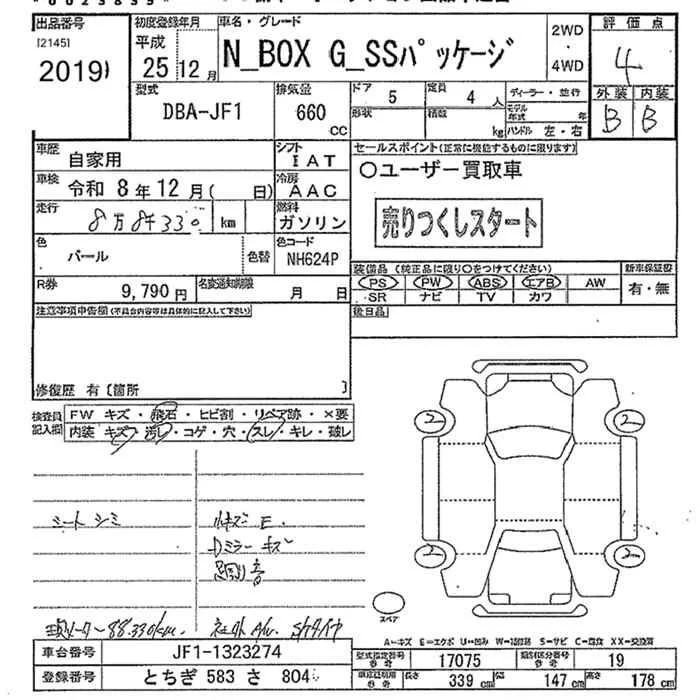 出品番号 初度登録年月 車名・グレード 評価点
(21451
20191
平成
25 12月
N_BOX G_SSパッケージ
2WD
・
4WD
4
型式
DBA-JF1
排気量
660
CC
ドア 5
定員 4 人
形状
積数 kg
ディーラー・並行
モデル年式 年
ハンドル 左・右
外装 内装
B B
車歴 自家用
シフト IAT
セールスポイント(正常に機能するものに限ります)
車検 令和 8年 12月( 日)
冷房 AAC
○ユーザー買取車
走行 8万8千330 km
燃料 ガソリン
売りつくしスタート
色 パール
色替
色コード NH624P
R券 9,790円
名変通知期限 月 日
装備品(純正品に限り○をつけてください)
新車保証書
PS PW ABS エアB AW
SR ナビ TV カワ
有・無
注意事項申告欄(不具合内容等は具体的に記入して下さい)
後日品
修復歴 有〔箇所 〕
検査員記入欄
FW キズ・飛石・ヒビ割・リペア跡・×要
内装 キズ・汚レ・コゲ・穴・スレ・キレ・破レ
シートシミ
小キズ E.
Dミラーキズ
2 2
2 2
スペア
現メーター88.330km. 社外A/w.
A=キズ E=エクボ U=凹み W=補修跡 S=サビ C=腐食 XX=交換済
車台番号 JF1-1323274
型式指定番号 参考 17075
類別区分番号 参考 19
登録番号 とちぎ 583 さ 804
長さ 339 cm
幅 147 cm
高さ 178 cm